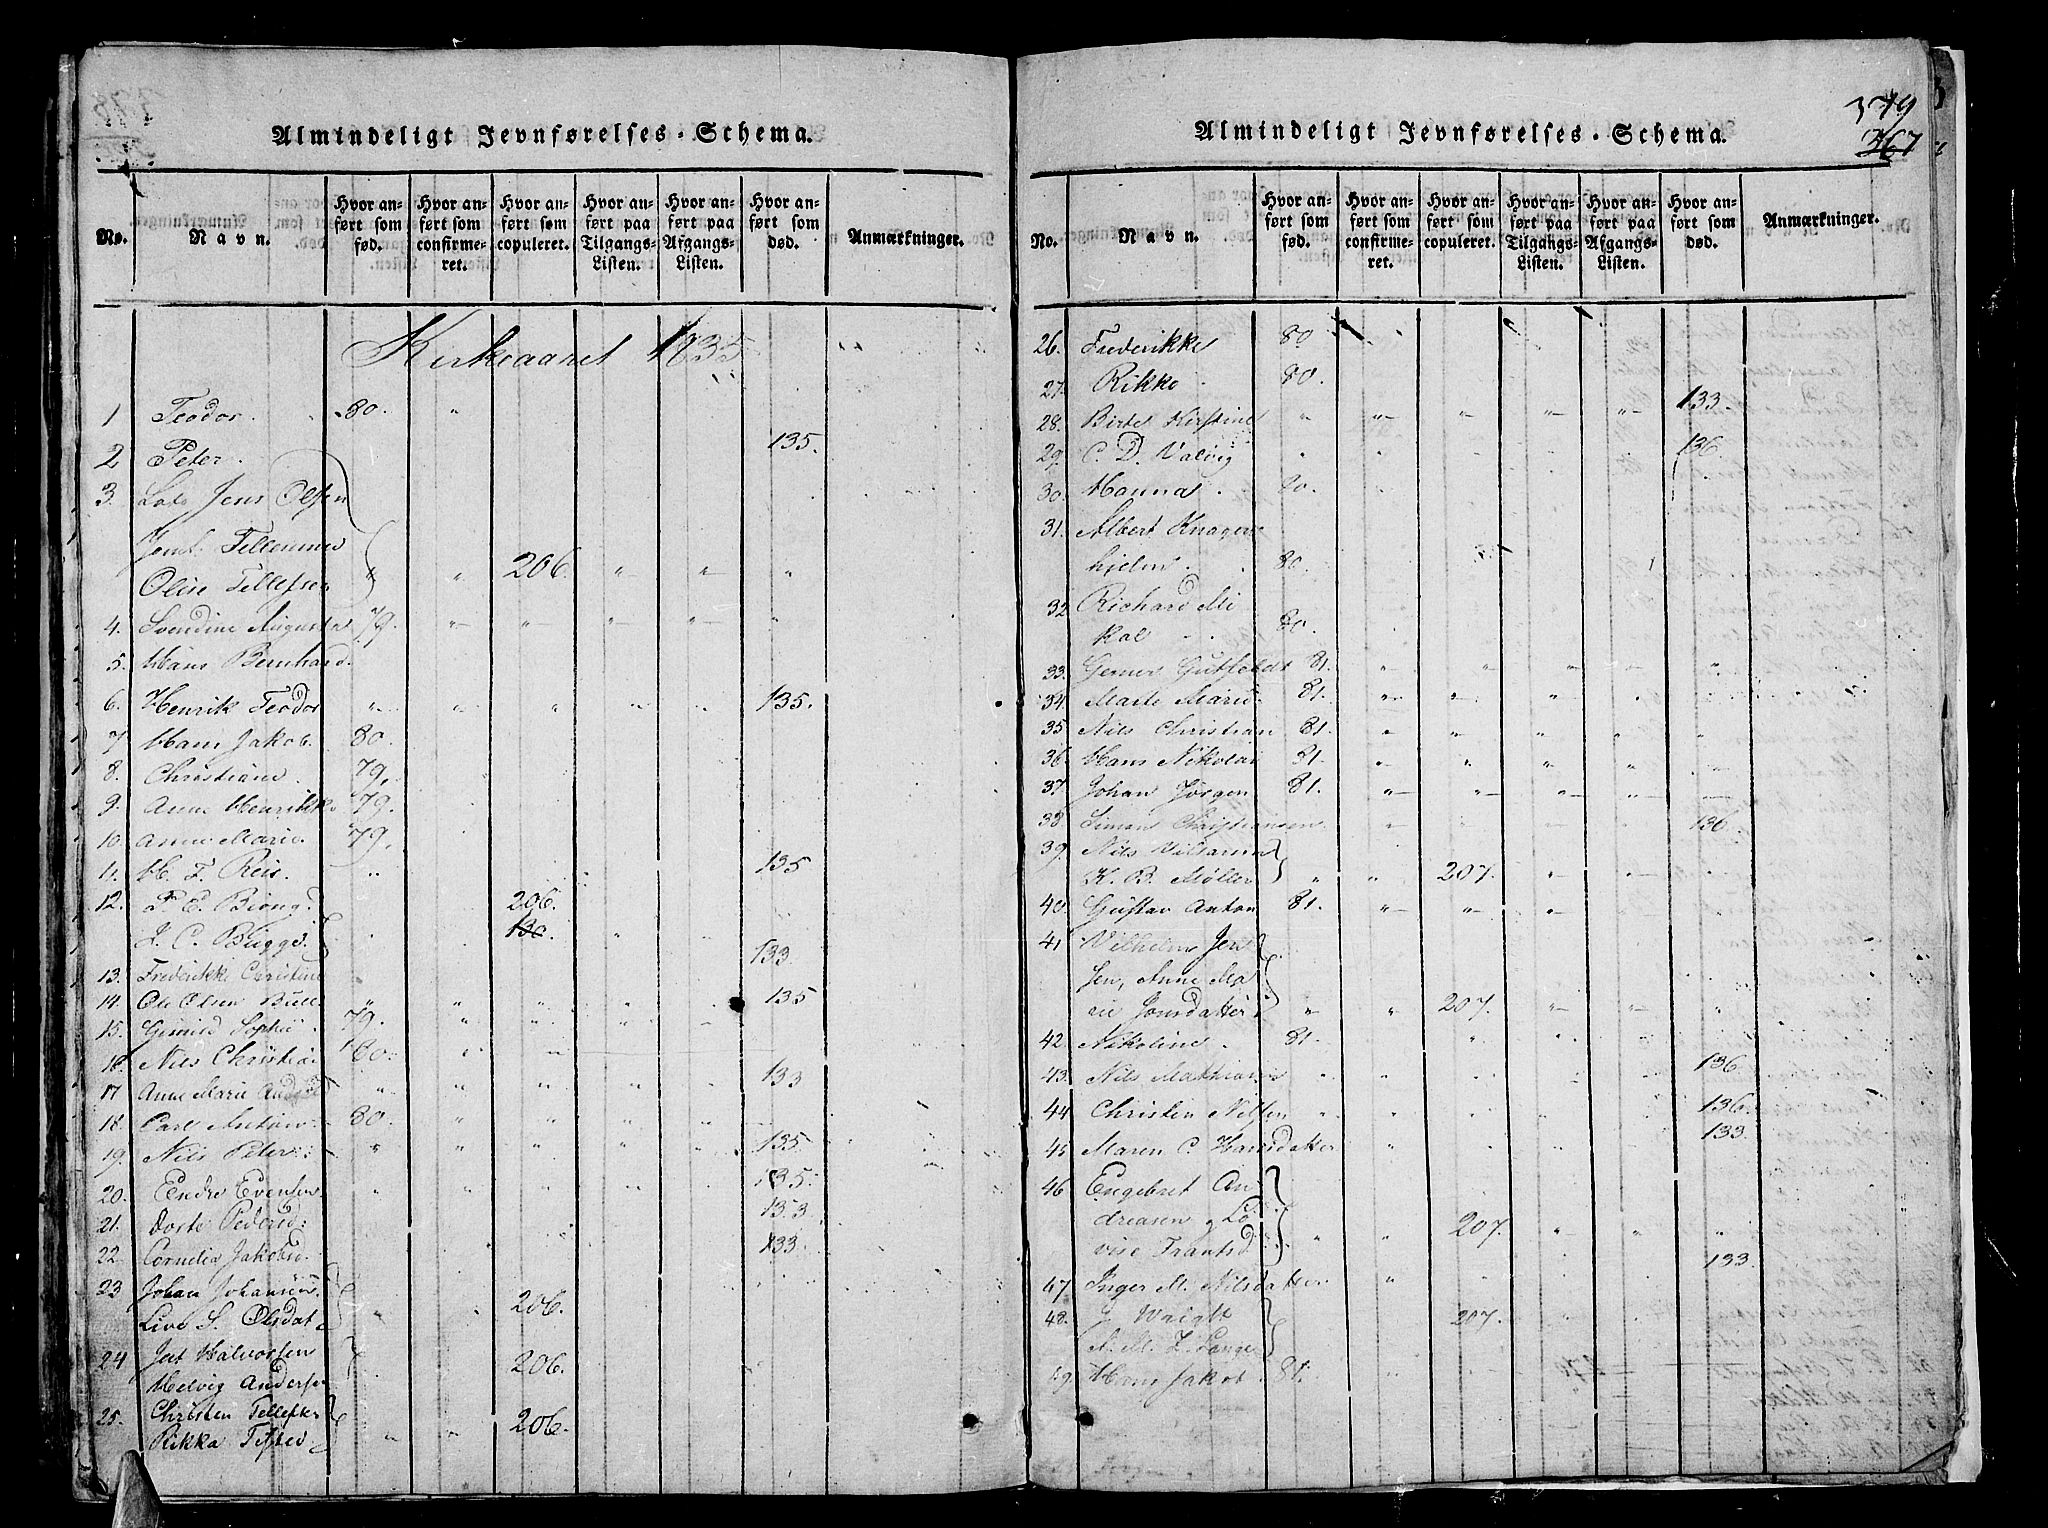 Almindeligt Jevnførelses-Schema.
No.
Navn.
Hvor anført som fød.
Hvor anført som confirmeret.
Hvor anført som copuleret.
Hvor anført paa Tilgangs-Listen.
Hvor anført paa Afgangs-Listen.
Hvor anført som død.
Anmærkninger.
Kirkeaaret 1835
1 Teodor. 80.
2 Peter. 135.
3. Jens Olsen
206.
Olise Tellefsen
4. Svendine Augusta 79.
5. Hans Bernhard.
6. Henrik Teodor 135.
7. Hans Jakob. 80.
8. Christiane. 79.
9. Anne Henrikke 79.
10. Anne Marie. 79.
11. H. F. Reis. 135
12. P. E. Biong 206.
J. C. Bugge 130.
13. Frederikke Christine 133.
14. Ole Olsen Bull 135
15. Sophie. 79.
16 Nils Christia 80.
17 Anne Marie 133
18. Carl Anton 80.
19. Nils Peter 135.
20. Endre Evensen 135.
21. Dorte Peders 133.
22. Cornelia Jakobsd. 133.
23 Johan Johansen
Live S. Olsdat 206.
24 Jert Halvorsen 206.
Helvig Anders
25. Christen Tellefsen
Rikka 206.
379
367
Almindeligt Jevnførelses-Schema.
No.
Navn.
Hvor anført som fød.
Hvor anført som confirmeret.
Hvor anført som copuleret.
Hvor anført paa Tilgangs-Listen.
Hvor anført paa Afgangs-Listen.
Hvor anført som død.
Anmærkninger.
26. Frederikke 80
27. Rikke 80.
28. Birte Kirstine 133.
29. C. D. Valvig 136
30. Hanna. 80.
31. Albert Knagen
hjelm. 80.
32. Richard Mi
kal 80.
33. Gutfeldt 81.
34. Marte Marie 81.
35 Nils Christian 81.
36. Hans Nikolai 81.
37 Johan Jørgen 81.
38 Simon Christiansen. 136
39. Nils
K. B. Møller 207.
40. Gustav Anton 81.
41 Vilhelm Jen
sen, Anne Ma
rie Jonsdatter 207.
42. Nikoline. 81.
43. Nils Mathias 136.
44 Christen Nilsen 136.
45 Maren C. Hansdatter 133.
46 Engebret An
dreasen og Lo
vise Frantsd. 207.
47 Inger M. Nilsdatter 133.
48. J. Wright 207.
A. M. L. Lange
49 Hans Jakob. 81.